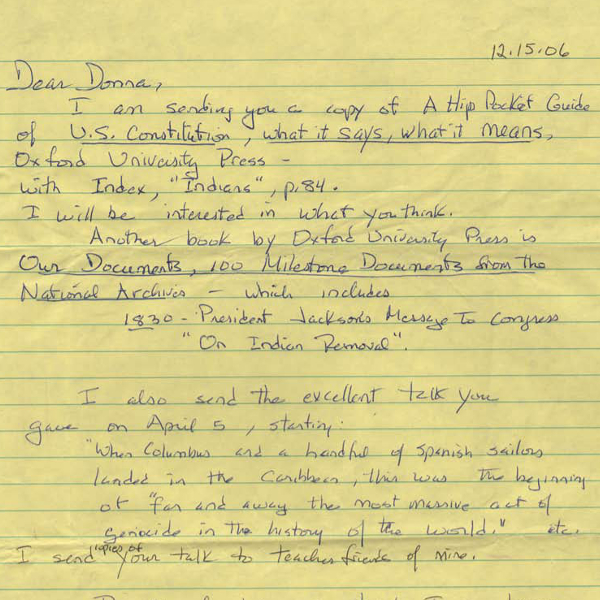 12.15.06
Dear Donna,
I am sending you a copy of A Hip Pocket Guide
of U.S. Constitution, what it says, what it means,
Oxford University Press -
with Index, "Indians", p.84.
I will be interested in what you think.
Another book by Oxford University Press is
Our Documents, 100 Milestone Documents from the
National Archives - which includes
1830 - President Jackson's Message To Congress
"On Indian Removal".
I also send the excellent talk you
gave on April 5, starting:
"When Columbus and a handful of Spanish sailors
landed in the Caribbean, this was the beginning
of "far and away the most massive act of
genocide in the history of the world." etc.
copies of
I send your talk to teacher friends of mine.